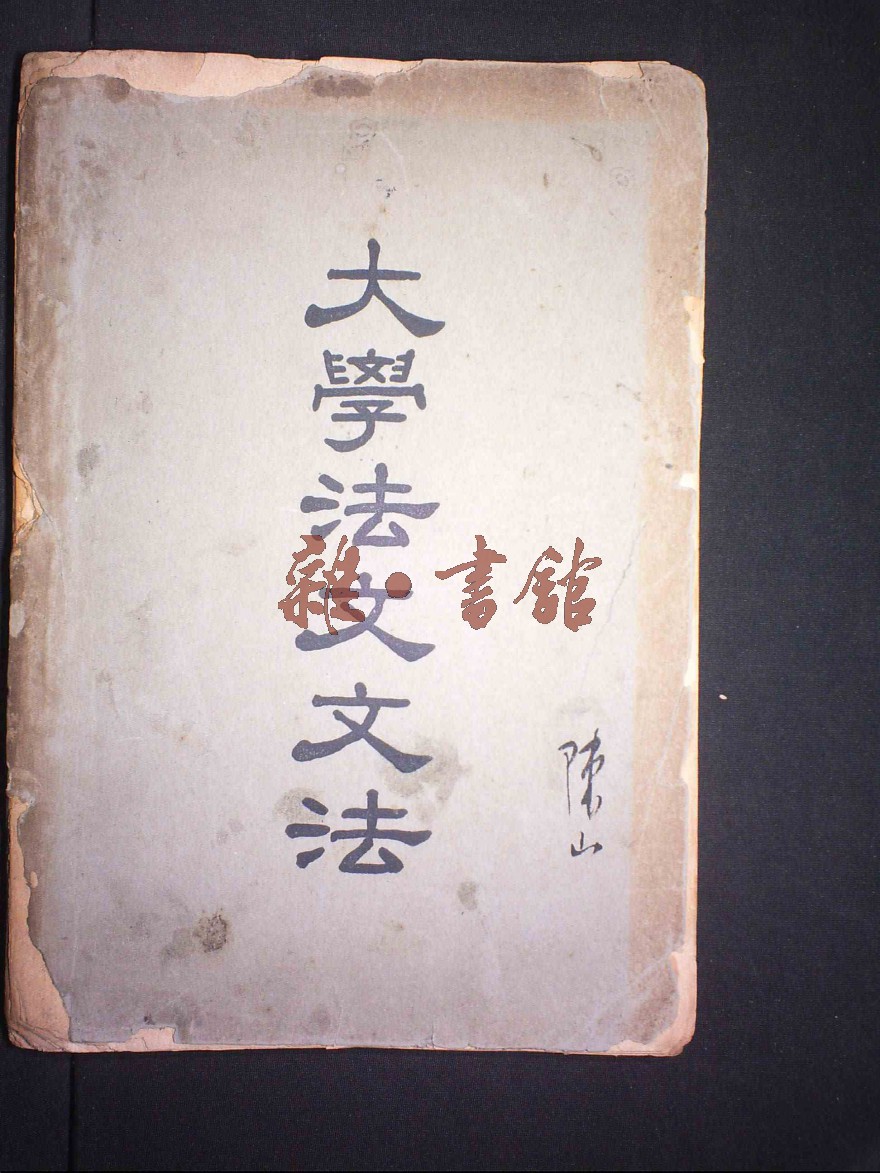 大學法文文法
雜·書館
陳山